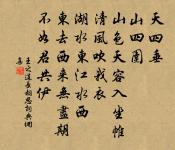 天四垂
山四圍
山色天容入坐帷
清風吹我衣
湖水東江水西
東去西來無盡期
不如君共伊
王之道長相思詞